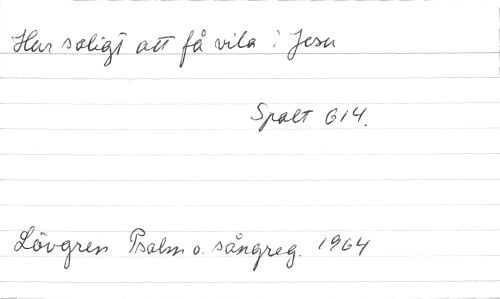 Hur saligt att få vila i Jesu
Spalt 614.
Lövgren Psalm o. sångreg. 1964